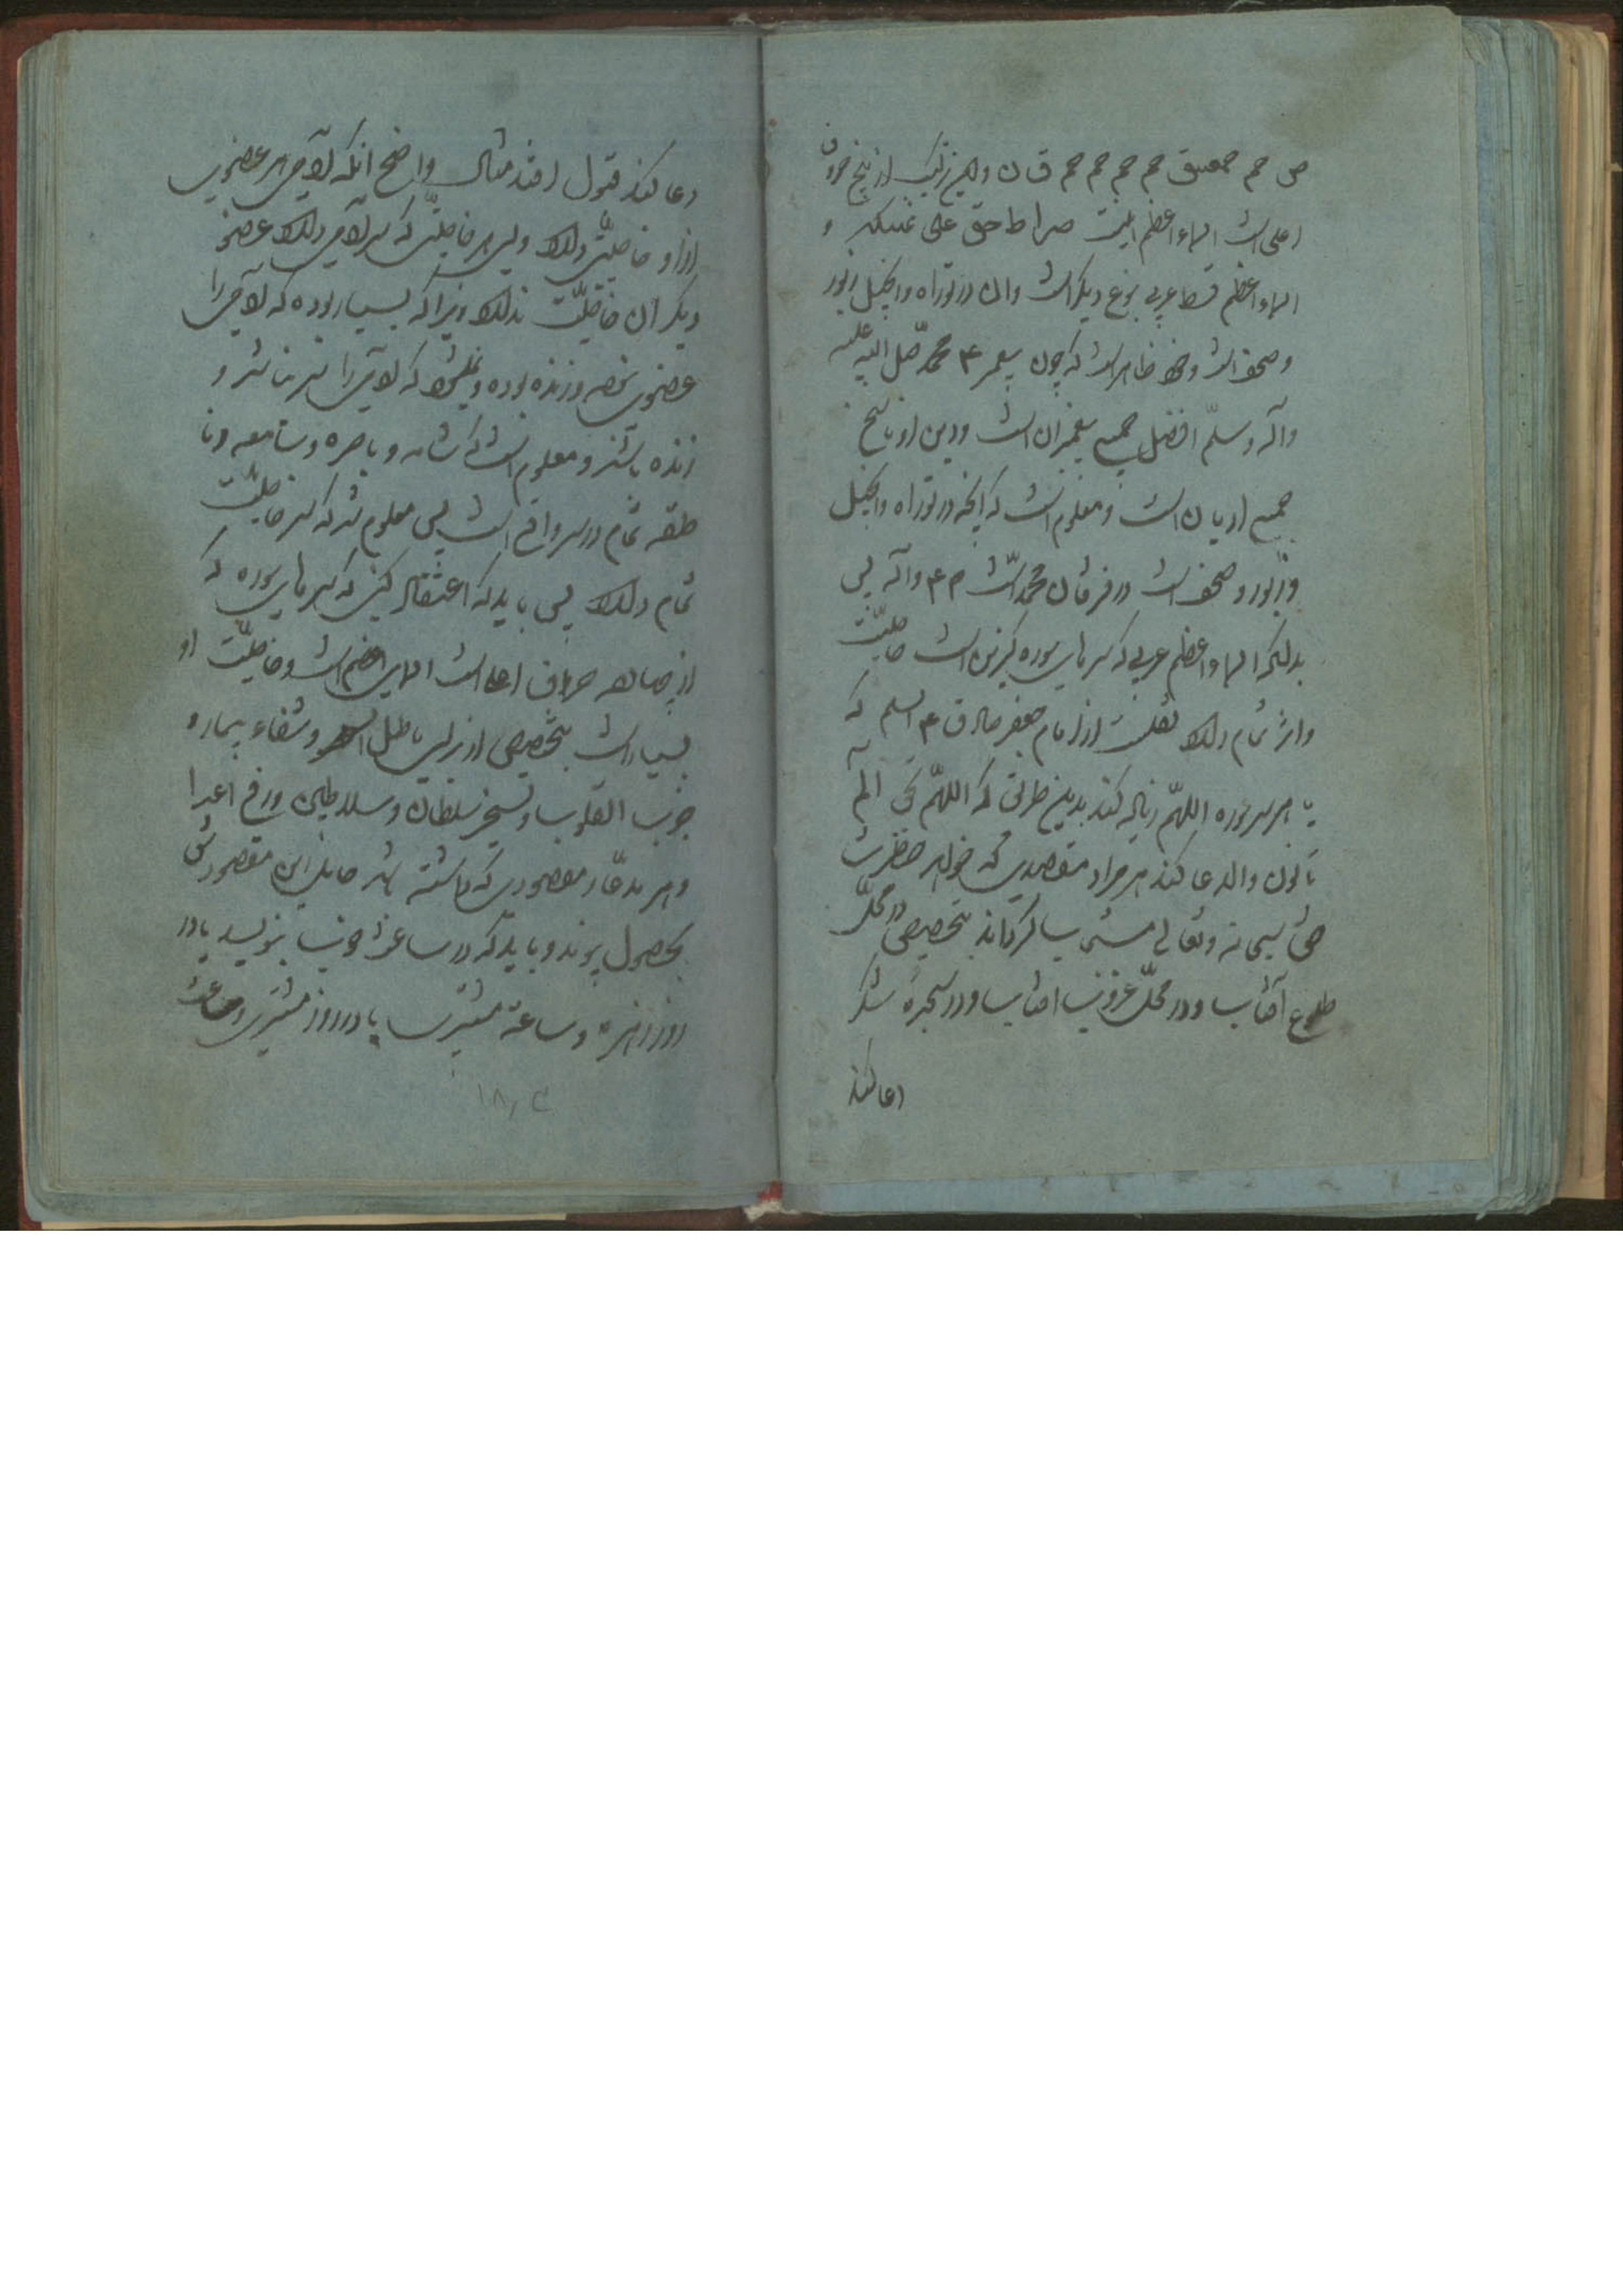 ص حم حمعسق حم حم حم حم ق ن و این ترکیب از پنج حروف
اعلی است اسماء اعظم اینست صراط حق علی نمسکه و
اسماء اعظم قسط عربی نوع دیگر است و ان در توراه و انجیل زبور
و صحف است و ظاهر است که چون پیغمبر ۴ محمد صلی الله علیه
وآله وسلم افضل جمیع پیغمبران است و دین او ناسخ
جمیع ادیان است و معلوم است که آنچه در توراه و انجیل
و زبور و صحف است در فرقان محمد است م ۴ وآله پس
بدانکه اسماء اعظم عربی که سرهای سوره کریمه است خاصیت
و اثر تمام دارد نقلست از امام جعفر صادق ۴ السلم که
با هر سر سوره اللهم زیاده کند بدین طریق که اللهم بحق الم
تا نون و الدعا کند هر مراد و مقصدی که خواهد حضرت
حق سبحانه و تعالی میسر گرداند بتخصیص در محل
طلوع آفتاب و در محل غروب افتاب و در سجده شکر
دعا کند
دعا کند قبول افتد مثال واضح انکه آدمی هر عضوی
از او خاصیتی دارد ولی هر خاصیتی که سر آدمی دارد عضو
دیگر ان خاصیت ندارد زیرا که بسیار بوده که آدمی را
عضوی نبوده و زنده بوده و نمیشود که آدمی را سر نباشد و
زنده باشد و معلوم است که شامه و باصره و سامعه و نا
طقه تمام در سر واقع است پس معلوم شد که سر خاصیت
تمام دارد پس باید که اعتقاد کنی که سرهای سوره که
از چهارده حروف اعلا است اسمای اعظم است و خاصیت او
بسیار است بتخصیص از برای باطل السحر و شفاء بیمار و
جذب القلوب و تسخیر سلطان و سلاطین و رفع اعدا
و هر مدعا و مقصودی که داشته باشد حامل این مقصودش
بحصول پیوندد و باید که در ساعت خوب بنویسد یا در
روز زهره و ساعة مشتری یا در روز مشتری و ساعت